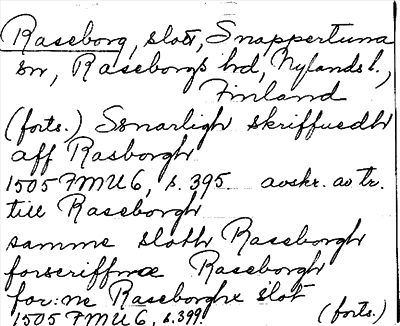 Raseborg, slott, Snappertuna
sn, Raseborgs hd, Nylands l.,
Finland
(forts.) Ssnarligh skriffuedh
aff Rasborgh
1505 FMU6, s. 395. avskr. av tr.
till Raseborgh
samme sloth Raseborgh
forscriffne Raseborgh
for:ne Raseborghx slot
1505 FMU6, s. 399. (forts.)